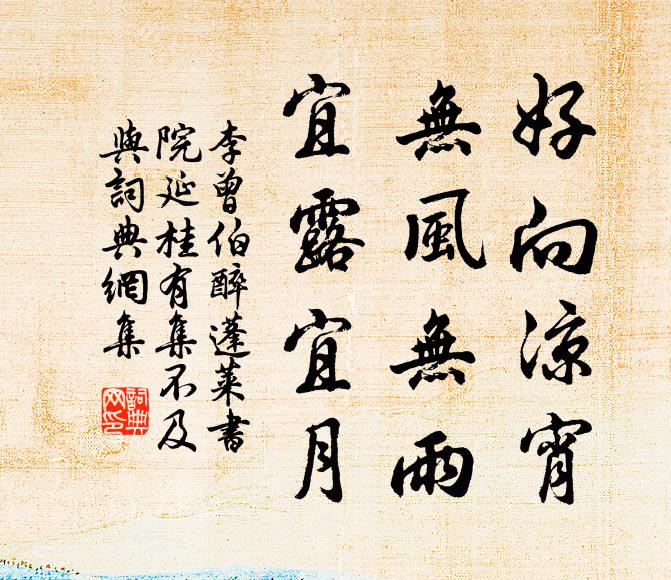 好向涼宵
無風無雨
宜露宜月
李曾伯醉蓬萊書
院延桂有集不及
與詞典網集
詞典
网印